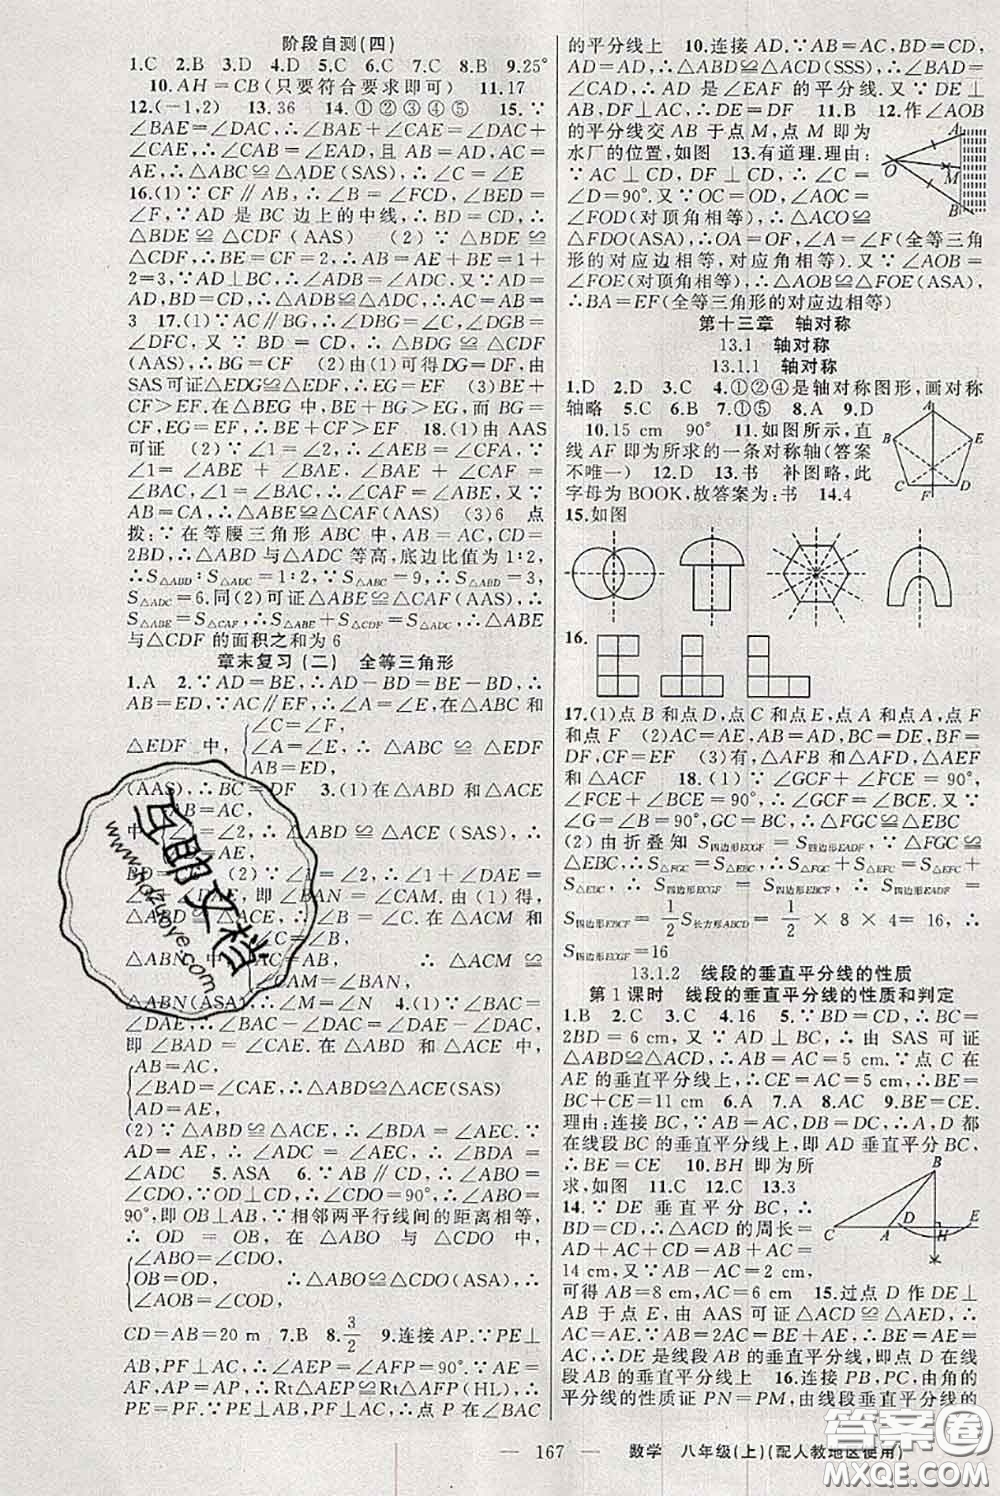 阶段自测(四)
1.C 2.B 3.D 4.D 5.C 6.C 7.C 8.B 9.25°
10.AH=CB(只要符合要求即可) 11.17
12.(-1,2) 13.36 14.①②③④⑤ 15.∵
∠BAE=∠DAC,∴∠BAE+∠CAE=∠DAC+
∠CAE,∴∠BAC=∠EAD,且AB=AD,AC=
AE,∴△ABC≌△ADE(SAS),∴∠C=∠E
16.(1)∵CF∥AB,∴∠B=∠FCD,∠BED=
∠F,∵AD是BC边上的中线,∴BD=CD,∴
△BDE≌△CDF(AAS) (2)∵△BDE≌
△CDF,∴BE=CF=2,∴AB=AE+BE=1+
2=3,∵AD⊥BC,∴∠ADB=∠ADC=90°.又∵AD=
AD,BD=CD,∴△ABD≌△ACD(SAS),∴AC=AB=
3 17.(1)∵AC∥BG,∴∠DBG=∠C,∠DGB=
∠DFC,又∵BD=CD,∴△BDG≌△CDF
(AAS),∴BG=CF (2)由(1)可得DG=DF,由
SAS可证△EDG≌△EDF,∴EG=EF (3)BE+
CF>EF.在△BEG中,BE+BG>EG,而BG=
CF,EG=EF,∴BE+CF>EF 18.(1)由AAS
可证 (2)∵∠1=∠2,∴∠AEB=∠CFA.∵
∠1=∠ABE+∠BAE,∠BAC=∠CAF+
∠BAE,∠1=∠BAC,∴∠CAF=∠ABE,又∵
AB=CA,∴△ABE≌△CAF(AAS) (3)6 点
拨:∵在等腰三角形ABC中,AB=AC,CD=
2BD,∴△ABD与△ADC等高,底边比值为1:2,
∴S△ABD:S△ADC=1:2,∵S△ABC=9,∴S△ABD=3,
S△ADC=6.同(2)可证△ABE≌△CAF(AAS),∴
S△ABE=S△CAF,∴S△ABE+S△CDF=S△ADC=6,∴△ABE
与△CDF的面积之和为6
章末复习(二) 全等三角形
1.A 2.∵AD=BE,∴AD-BD=BE-BD,∴
AB=ED,∵AC∥EF,∴∠A=∠E,在△ABC和
∠C=∠F,
△EDF中,∠A=∠E,∴△ABC≌△EDF
AB=ED,
(AAS),∴BC=DF 3.(1)在△ABD和△ACE
AB=AC,
中,∠1=∠2,∴△ABD≌△ACE(SAS),∴
AD=AE,
BD=CE (2)∵∠1=∠2,∴∠1+∠DAE=
∠2+∠DAE,即∠BAN=∠CAM.由(1)得,
△ABD≌△ACE,∴∠B=∠C,在△ACM和
△ABN中
∠CAM=∠BAN,
△ABN(ASA),∴∠M=∠N 4.(1)∵∠BAC=
∠DAE,∴∠BAC-∠DAC=∠DAE-∠DAC,
即∠BAD=∠CAE.在△ABD和△ACE中,
AB=AC,
∠BAD=∠CAE,∴△ABD≌△ACE(SAS)
AD=AE,
(2)∵△ABD≌△ACE,∴∠BDA=∠AEC.∵
AD=AE,∴∠ADE=∠AEC,∴∠BDA=
∠ADC 5.ASA 6.∵AB∥CD,∴∠ABO=
∠CDO,∵OD⊥CD,∴∠CDO=90°,∴∠ABO=
90°,即OB⊥AB,∵相邻两平行线间的距离相等,
∴OD=OB,在△ABO与△CDO中,
∠ABO=∠CDO,
OB=OD, ∴△ABO≌△CDO(ASA),∴
∠AOB=∠COD,
CD=AB=20 m 7.B 8.3/2 9.连接AP.∵PE⊥
AB,PF⊥AC,∴∠AEP=∠AFP=90°.∵AE=
AF,AP=AP,∴Rt△AEP≌Rt△AFP(HL),∴
PE=PF.又∵PE⊥AB,PF⊥AC,∴点P在∠BAC
的平分线上 10.连接AD.∵AB=AC,BD=CD,
AD=AD,∴△ABD≌△ACD(SSS),∴∠BAD=
∠CAD,∴AD是∠EAF的平分线.又∵DE⊥
AB,DF⊥AC,∴DE=DF 11.B 12.作∠AOB
的平分线交AB于点M,点M即为
水厂的位置,如图 13.有道理.理由:
∵AC⊥CD,DF⊥CD,∴∠C=
∠D=90°.又∵OC=OD,∠AOC=
∠FOD(对顶角相等),∴△ACO≌
△FDO(ASA),∴OA=OF,∠A=∠F(全等三角
形的对应边相等,对应角相等).又∵∠BOA=
∠FOE(对顶角相等),∴△AOB≌△FOE(ASA),
∴BA=EF(全等三角形的对应边相等)
A
O
M
B
第十三章 轴对称
13.1 轴对称
13.1.1 轴对称
1.D 2.D 3.C 4.①②④是轴对称图形,画对称
轴略 5.C 6.B 7.①⑤ 8.A 9.D
10.15 cm 90° 11.如图所示,直
线AF即为所求的一条对称轴(答案
不唯一) 12.D 13.书 补图略,此
字母为BOOK,故答案为:书 14.4
15.如图
A
B
E
C
F
D
16.
17.(1)点B和点D,点C和点E,点A和点A,点F
和点F (2)AC=AE,AB=AD,BC=DE,BF=
DF,CF=EF (3)有,△AFB和△AFD,△AEF
和△ACF 18.(1)∵∠GCF+∠FCE=90°,
∠FCE+∠BCE=90°,∴∠GCF=∠BCE.又∵
∠G=∠B=90°,GC=BC,∴△FGC≌△EBC
(2)由折叠知S四边形ECGF=S四边形EADF,∵△FGC≌
△EBC,∴S△FGC=S△EBC,∴S△FGC+S△EFC=S△EFC
+S△EBC,∴S四边形ECGF=S四边形EBCF,∴S四边形EADF=
S四边形EBCF=1/2 S长方形ABCD=1/2×8×4=16,∴
S四边形ECGF=16
13.1.2 线段的垂直平分线的性质
第1课时 线段的垂直平分线的性质和判定
1.B 2.C 3.C 4.16 5.∵BD=CD,∴BC=
2BD=6 cm,又∵AD⊥BC,∴由SAS可证
△ABD≌△ACD,∴AC=AB=5 cm.∵点C在
AE的垂直平分线上,∴CE=AC=5 cm,∴BE=
BC+CE=11 cm 6.A 7.A 8.AC 9.BE=CE.
理由:连接BC,∵AB=AC,DB=DC,∴A,D都
在线段BC的垂直平分线上,即AD垂直平分BC,
∴BE=CE 10.BH即为所
求,如图 11.C 12.C 13.3
14.∵DE垂直平分BC,∴
BD=CD,∴△ACD的周长=
AC+AD+CD=AC+AB=
14 cm,又∵AB-AC=2 cm,
可得AB=8 cm,AC=6 cm 15.过点D作DE⊥
AB于点E,由AAS可证△ACD≌△AED,∴
AC=AE.∵AB=2AC=BE+AE,∴BE=AC=
AE,∴DE是线段AB的垂直平分线,即点D在线
段AB的垂直平分线上 16.连接PB,PC,由角的
平分线的性质证PN=PM,由线段垂直平分线的
B
D
E
C
A
H
167
数学 八年级(上)(配人教地区使用)
答案圈
MXQE.COM